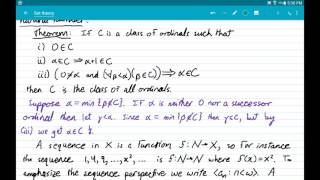 5:56 PM
Set theory
Theorem: If C is a class of ordinals such that
i) 0∈C
ii) α∈C ⇒ α+1∈C
iii) (0≠α and (∀β<α)(β∈C)) ⇒ α∈C
then C is the class of all ordinals.
Suppose α = min{β∉C}. If α is neither 0 nor a successor
ordinal then let γ<α. Since α = min{β∉C} then γ∈C, but by
(iii) we get α∈C
A sequence in X is a function f:N→X, so for instance
the sequence 1, 4, 9, ..., x², ... is f:N→N where f(x)=x². To
emphasize the sequence perspective we write ⟨aₙ : n<ω⟩. A